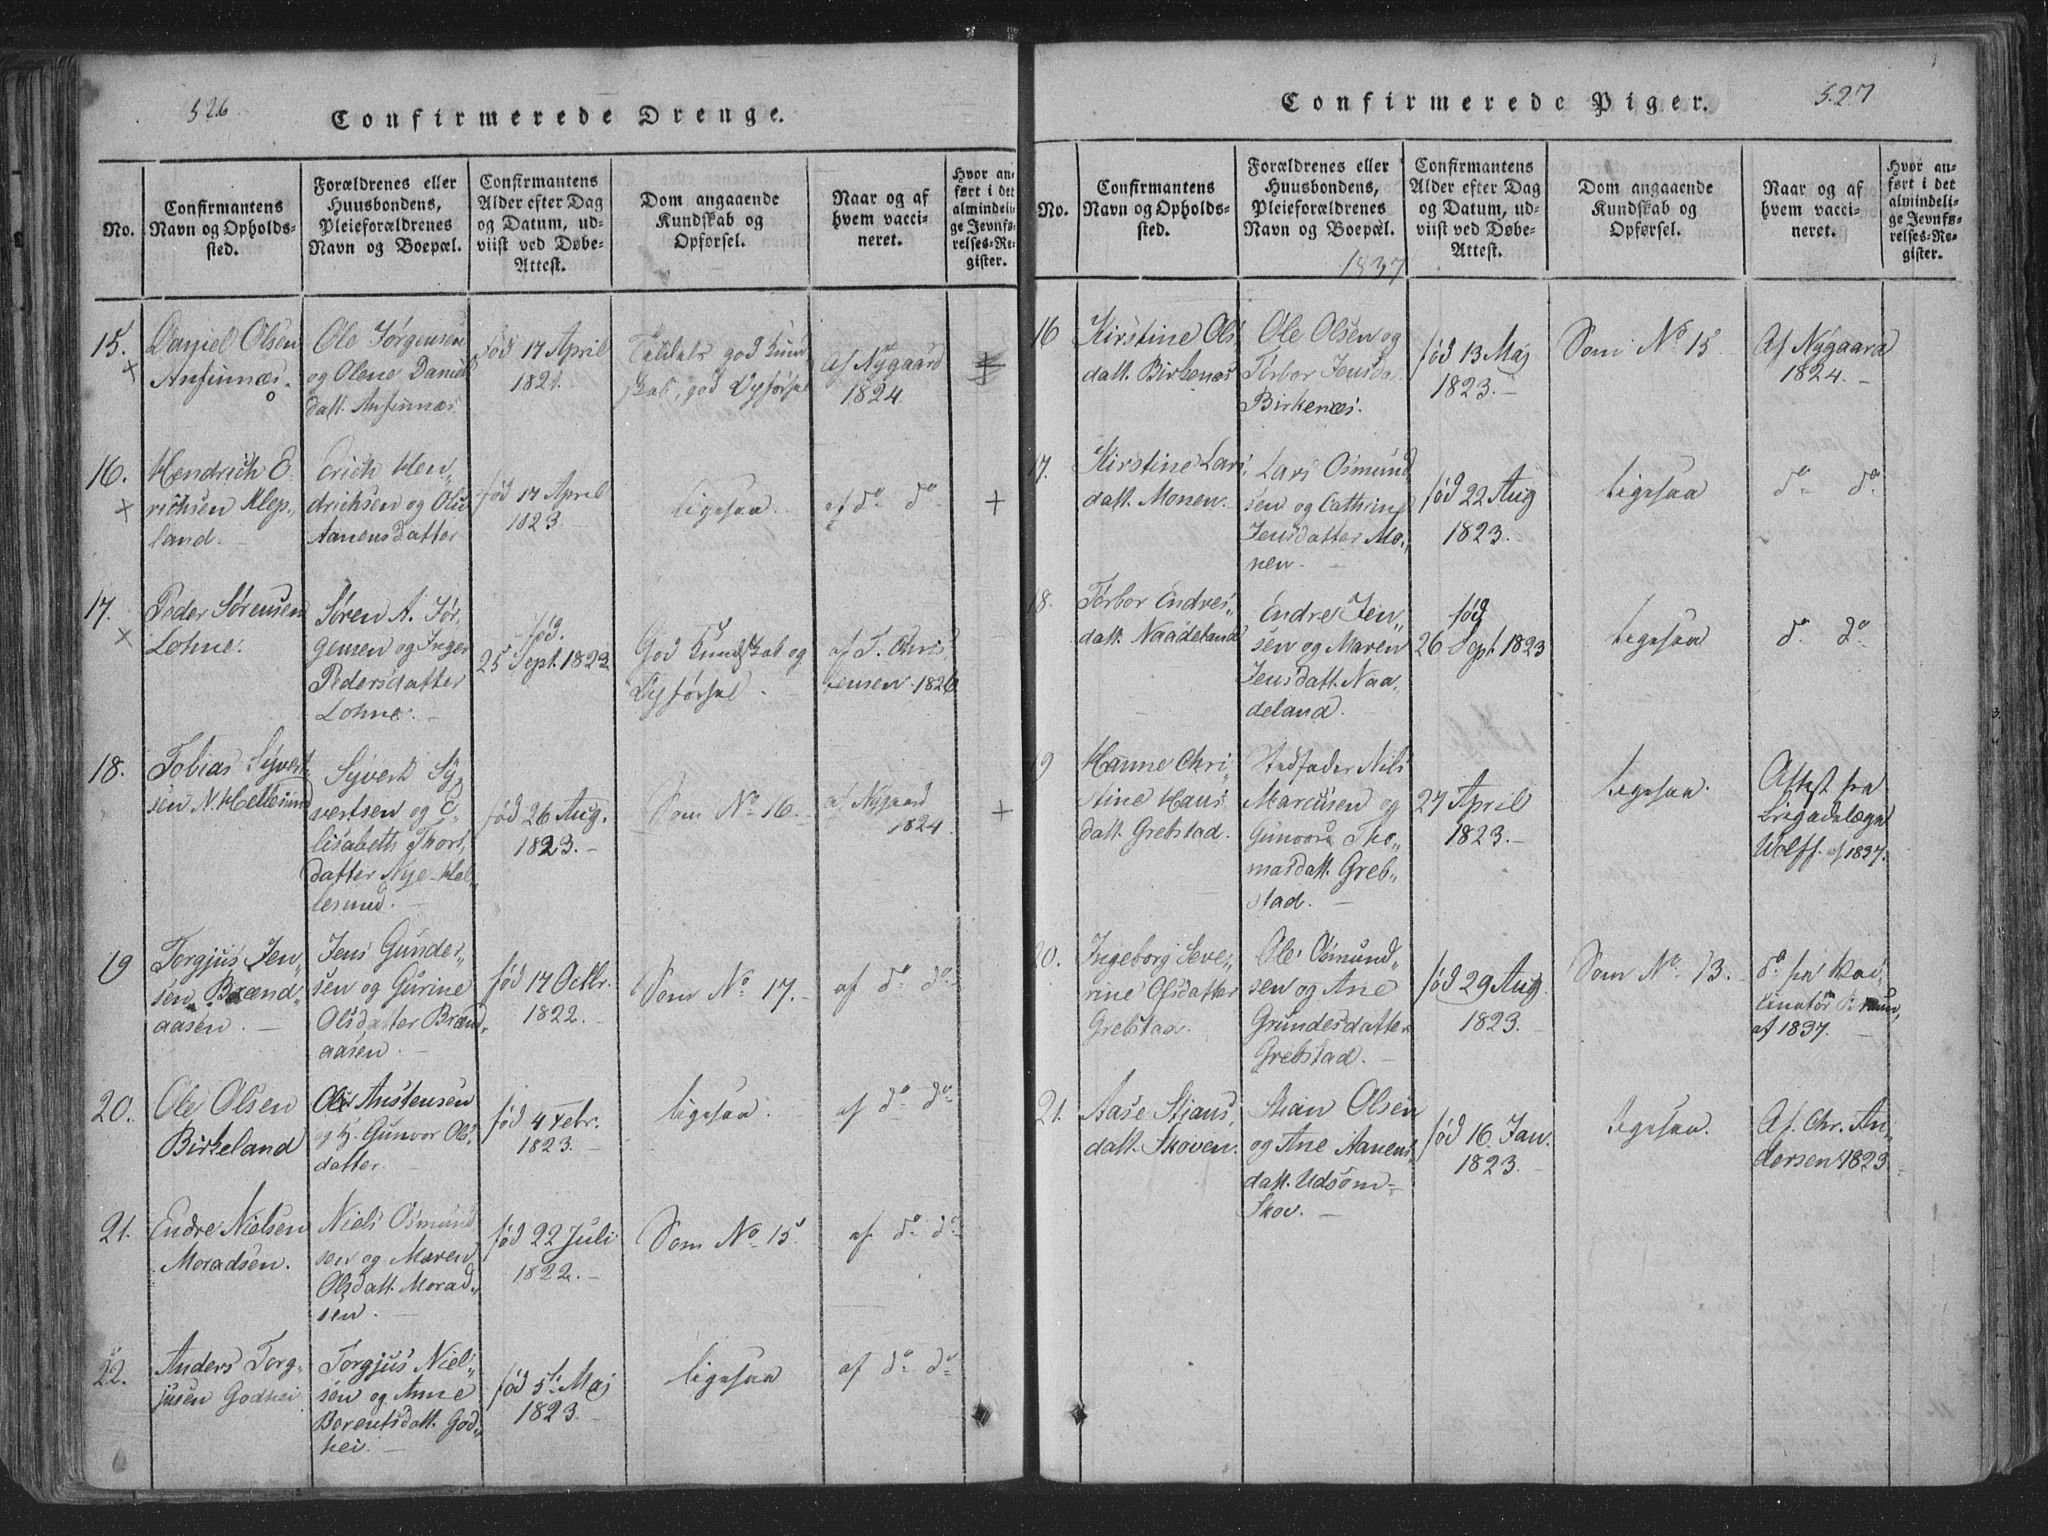 526
Confirmerede Drenge.
No.
Confirmantens
Navn og Opholds-
sted.
Forældrenes eller
Huusbondens,
Pleieforældrenes
Navn og Boepæl.
Confirmantens
Alder efter Dag
og Datum, ud-
viist ved Døbe-
Attest.
Dom angaaende
Kundskab og
Opførsel.
Naar og af
hvem vacci-
neret.
Hvor an-
ført i det
almindeli-
ge Jevnfø-
relses-Re-
gister.
15.
Daniel Olsen
Anfinnæs.
Ole Jørgensen
og Olene Daniels
datt. Anfinnæs.
fød 17 April
1821.
god Kund
skab, god Opførsel
Af Nygaard
1824
16.
Hendrich E
richsen Klep„
land.
Erich Hen„
drichsen og
Aanensdatter
fød 17 April
1823.
ligesaa.
af do do
+
17.
Peder Sørensen
Lohne.
Søren A. Jør„
gensen og Inger
Pedersdatter
Lohne.
fød.
25 Sept. 1823
God Kundskab og
Opførsel.
af T. Chris
tensen. 1826
18.
Tobias Syvert
sen N. Hellesund
Syvert Sy„
vertsen og E„
lisabeth Thors
datter Nye-Hel„
lesund.
fød 26 Aug.
1823.
Som No 16.
af Nygaard
1824
+
19
Torgjus Jen„
sen Brænd„
aasen.
Jens Gunder„
sen og Gurine
Olsdatter Brænd„
aasen.
fød 17 Octbr.
1822.
Som No 17.
af do do
20.
Ole Olsen
Birkeland
Ole Austensen
og Gunvor Ols
datter.
fød 4 Febr.
1823.
ligesaa.
af do do
21.
Endre Nielsen
Moradsen.
Niels Osmund
sen og Maren
Olsdatt. Morad„
sen.
fød 22 Juli
1822.
Som No 15.
af do do
22.
Anders Torg„
jusen Godhei
Torgjus Niel„
sen og Anne
Berentsdatt. God„
hei.
fød 5te Maj
1823.
ligesaa
af do do
527
Confirmerede Piger.
No.
Confirmantens
Navn og Opholds-
sted.
Forældrenes eller
Huusbondens,
Pleieforældrenes
Navn og Boepæl.
1837
Confirmantens
Alder efter Dag
og Datum, ud-
viist ved Døbe-
Attest.
Dom angaaende
Kundskab og
Opførsel.
Naar og af
hvem vacci-
neret.
Hvor an-
ført i det
almindeli-
ge Jevnfø-
relses-Re-
gister.
16
Kirstine Ols
datt. Birkenæs
Ole Olsen og
Torbor Jensda.
Birkenæs.
fød 13 Maj
1823.
Som No 15
Af Nygaard
1824.
17.
Kirstine Lars
datt. Monen.
Lars Osmund
sen og Cathrine
Jensdatter Mo„
nen.
fød 22 Aug
1823.
ligesaa
do do
18.
Torbor Endres„
datt. Naadeland
Endre Jen„
sen og Maren
Jensdatt. Naa„
deland.
fød
26 Sept. 1823
ligesaa
do do
19
Hanne Chri„
stine Hans
datt. Grebstad.
Stedfader Nils
Marcusen og
Gunvord Tho„
masdatt. Greb„
stad.
27 April
1823.
ligesaa.
Attest fra
Brigadelæge
Wolff. af 1837.
20.
Ingeborg Seve„
rine Olsdatter
Grebstad.
Ole Osmund„
sen og Ane
Grundesdatter
Grebstad.
fød 29 Aug.
1823.
Som No 13.
do fra Vac„
cinatør Braun,
af 1837.
21.
Aase Stians
datt. Skoven.
Stian Olsen
og Ane Aanens
datt. Udsöm„
Skov.
fød 16. Jan.
1823.
ligesaa.
Af Chr. An„
dersen 1823